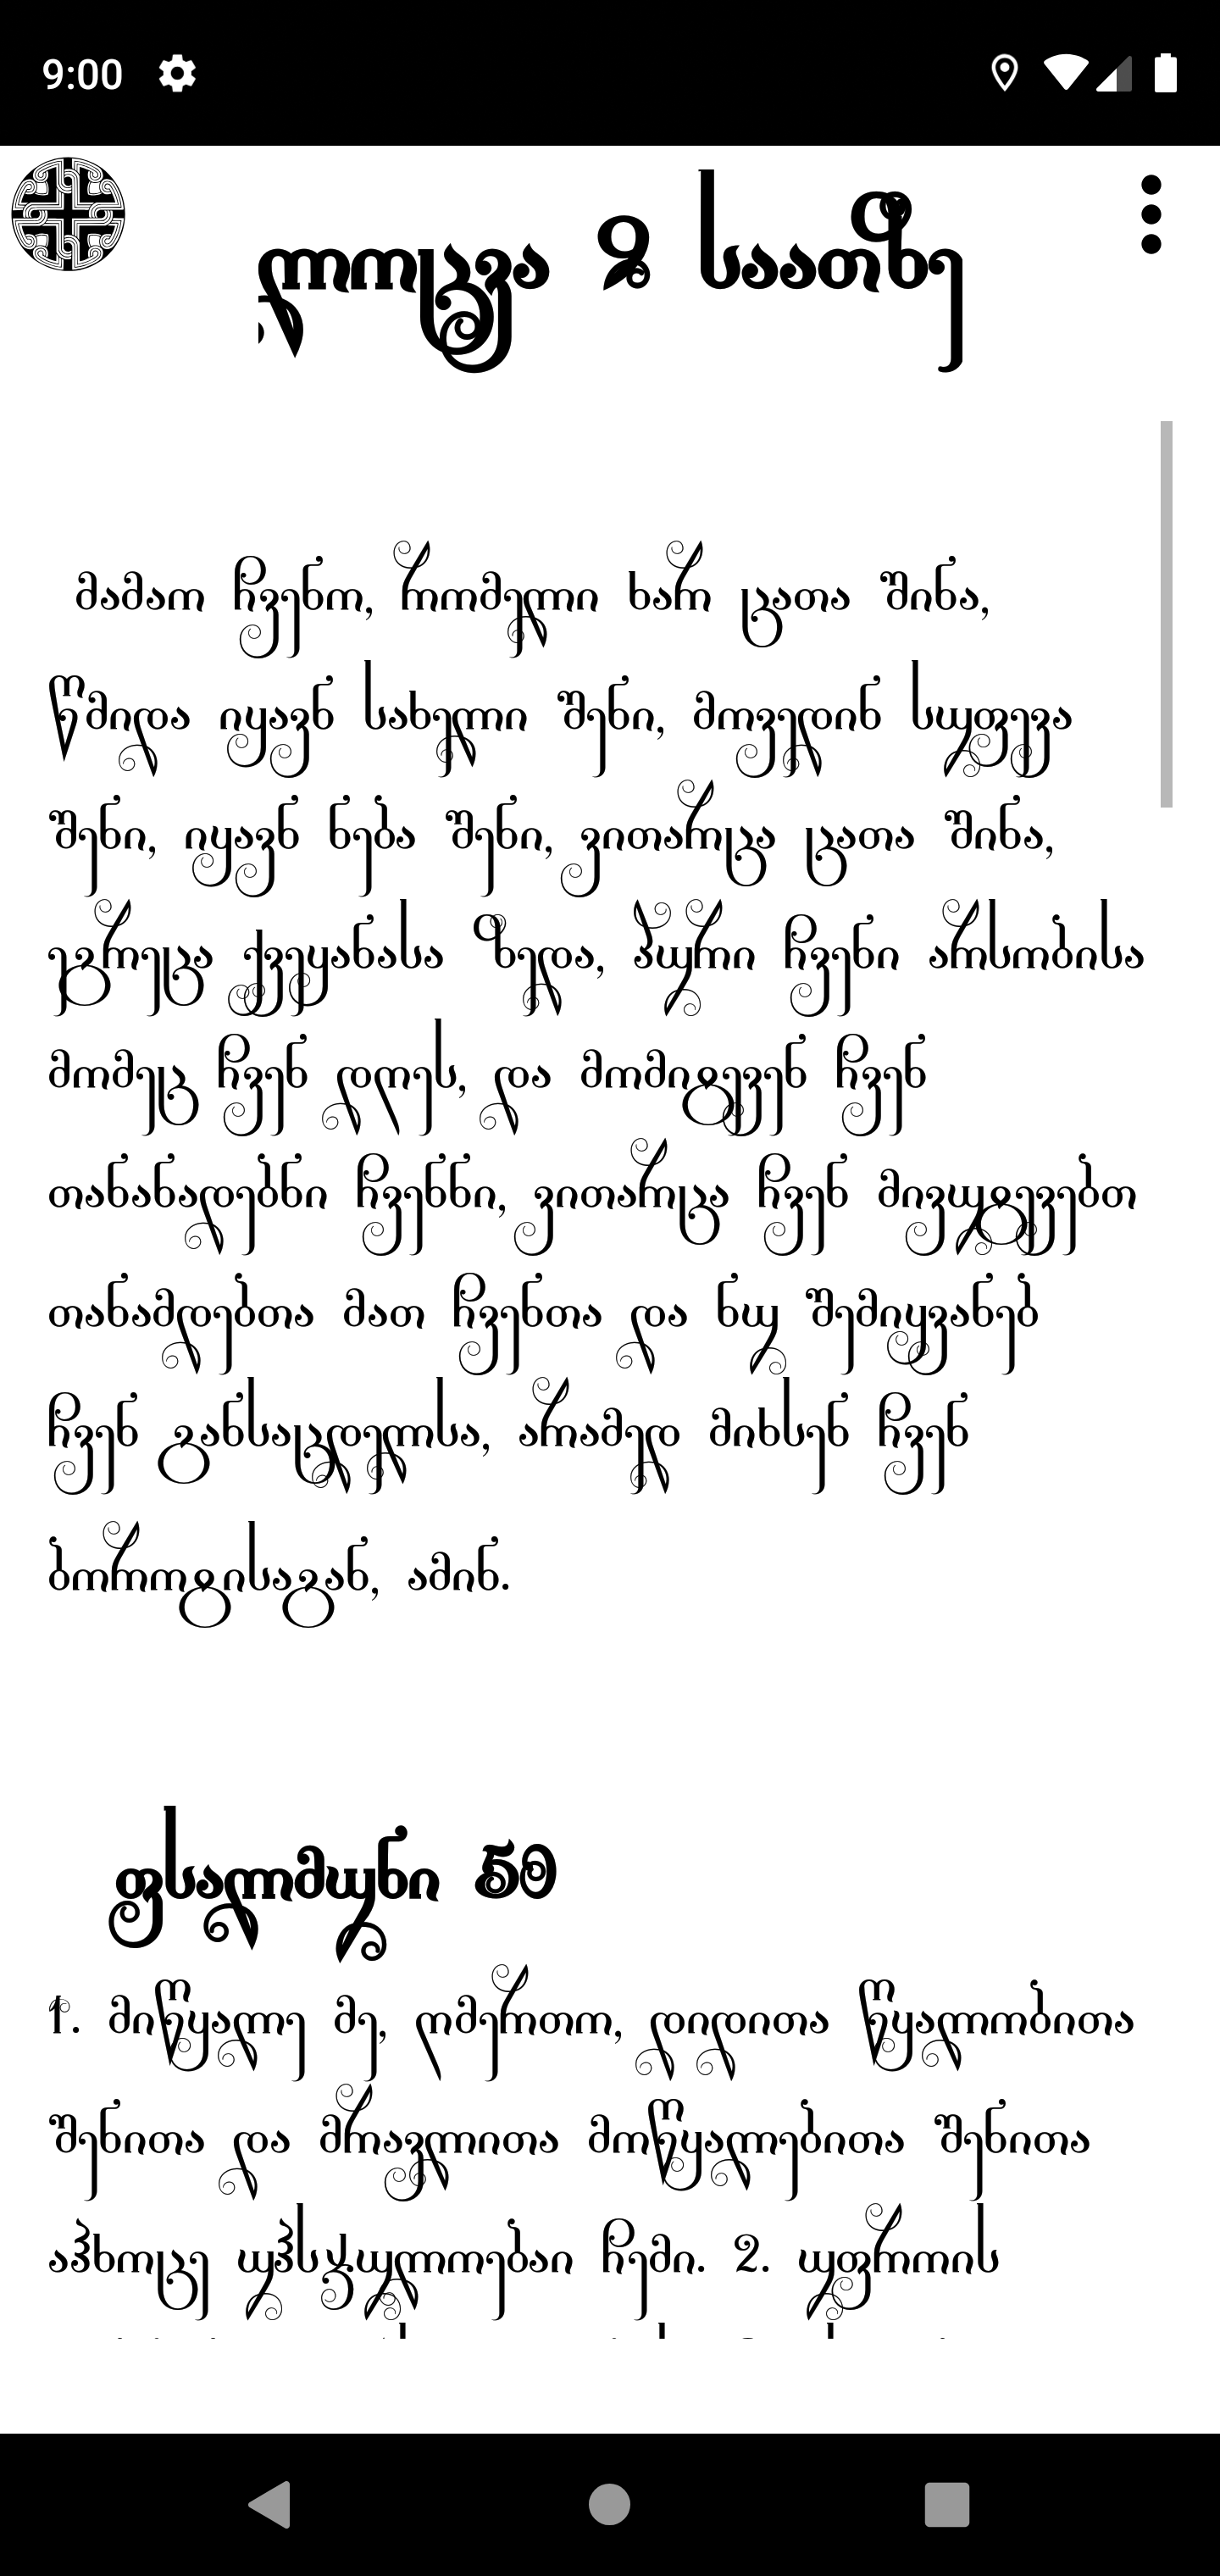 9:00
ლოცვა 9 საათზე
მამაო ჩვენო, რომელი ხარ ცათა შინა,
წმიდა იყავნ სახელი შენი, მოვედინ სუფევა
შენი, იყავნ ნება შენი, ვითარცა ცათა შინა,
ეგრეცა ქვეყანასა ზედა, პური ჩვენი არსობისა
მომეც ჩვენ დღეს, და მომიგევენ ჩვენ
თანანადებნი ჩვენნი, ვითარცა ჩვენ მივუგევებთ
თანამდებთა მათ ჩვენთა და ნუ შემიყვანებ
ჩვენ განსაცდელსა, არამედ მიხსენ ჩვენ
ბოროგისაგან, ამინ.
ფსალმუნი 50
1. მიწყალე მე, ღმერთო, დიდითა წყალობითა
შენითა და მრავლითა მოწყალებითა შენითა
აჰხოცე უჰსჯულოებაი ჩემი. 2. უფროის